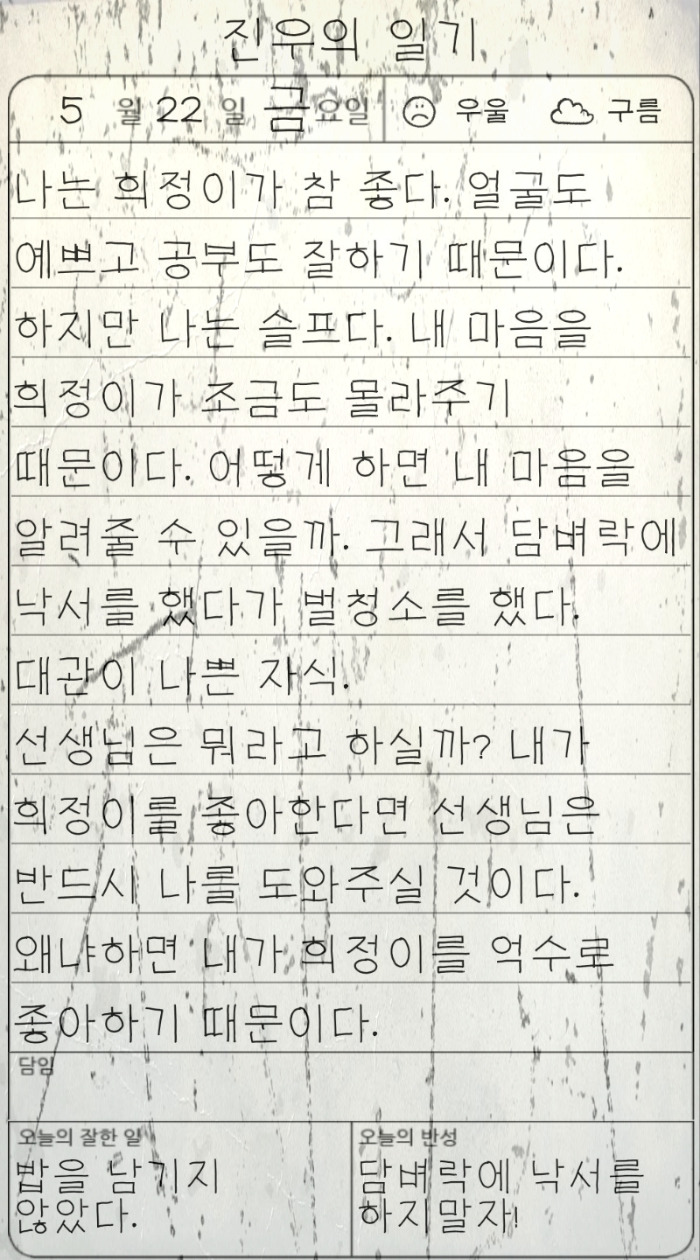 진우의 일기
5 월 22 일 금요일 우울 구름
나는 희정이가 참 좋다. 얼굴도
예쁘고 공부도 잘하기 때문이다.
하지만 나는 슬프다. 내 마음을
희정이가 조금도 몰라주기
때문이다. 어떻게 하면 내 마음을
알려줄 수 있을까. 그래서 담벼락에
낙서를 했다가 벌청소를 했다.
대관이 나쁜 자식.
선생님은 뭐라고 하실까? 내가
희정이를 좋아한다면 선생님은
반드시 나를 도와주실 것이다.
왜냐하면 내가 희정이를 억수로
좋아하기 때문이다.
담임
오늘의 잘한 일
밥을 남기지
않았다.
오늘의 반성
담벼락에 낙서를
하지말자!